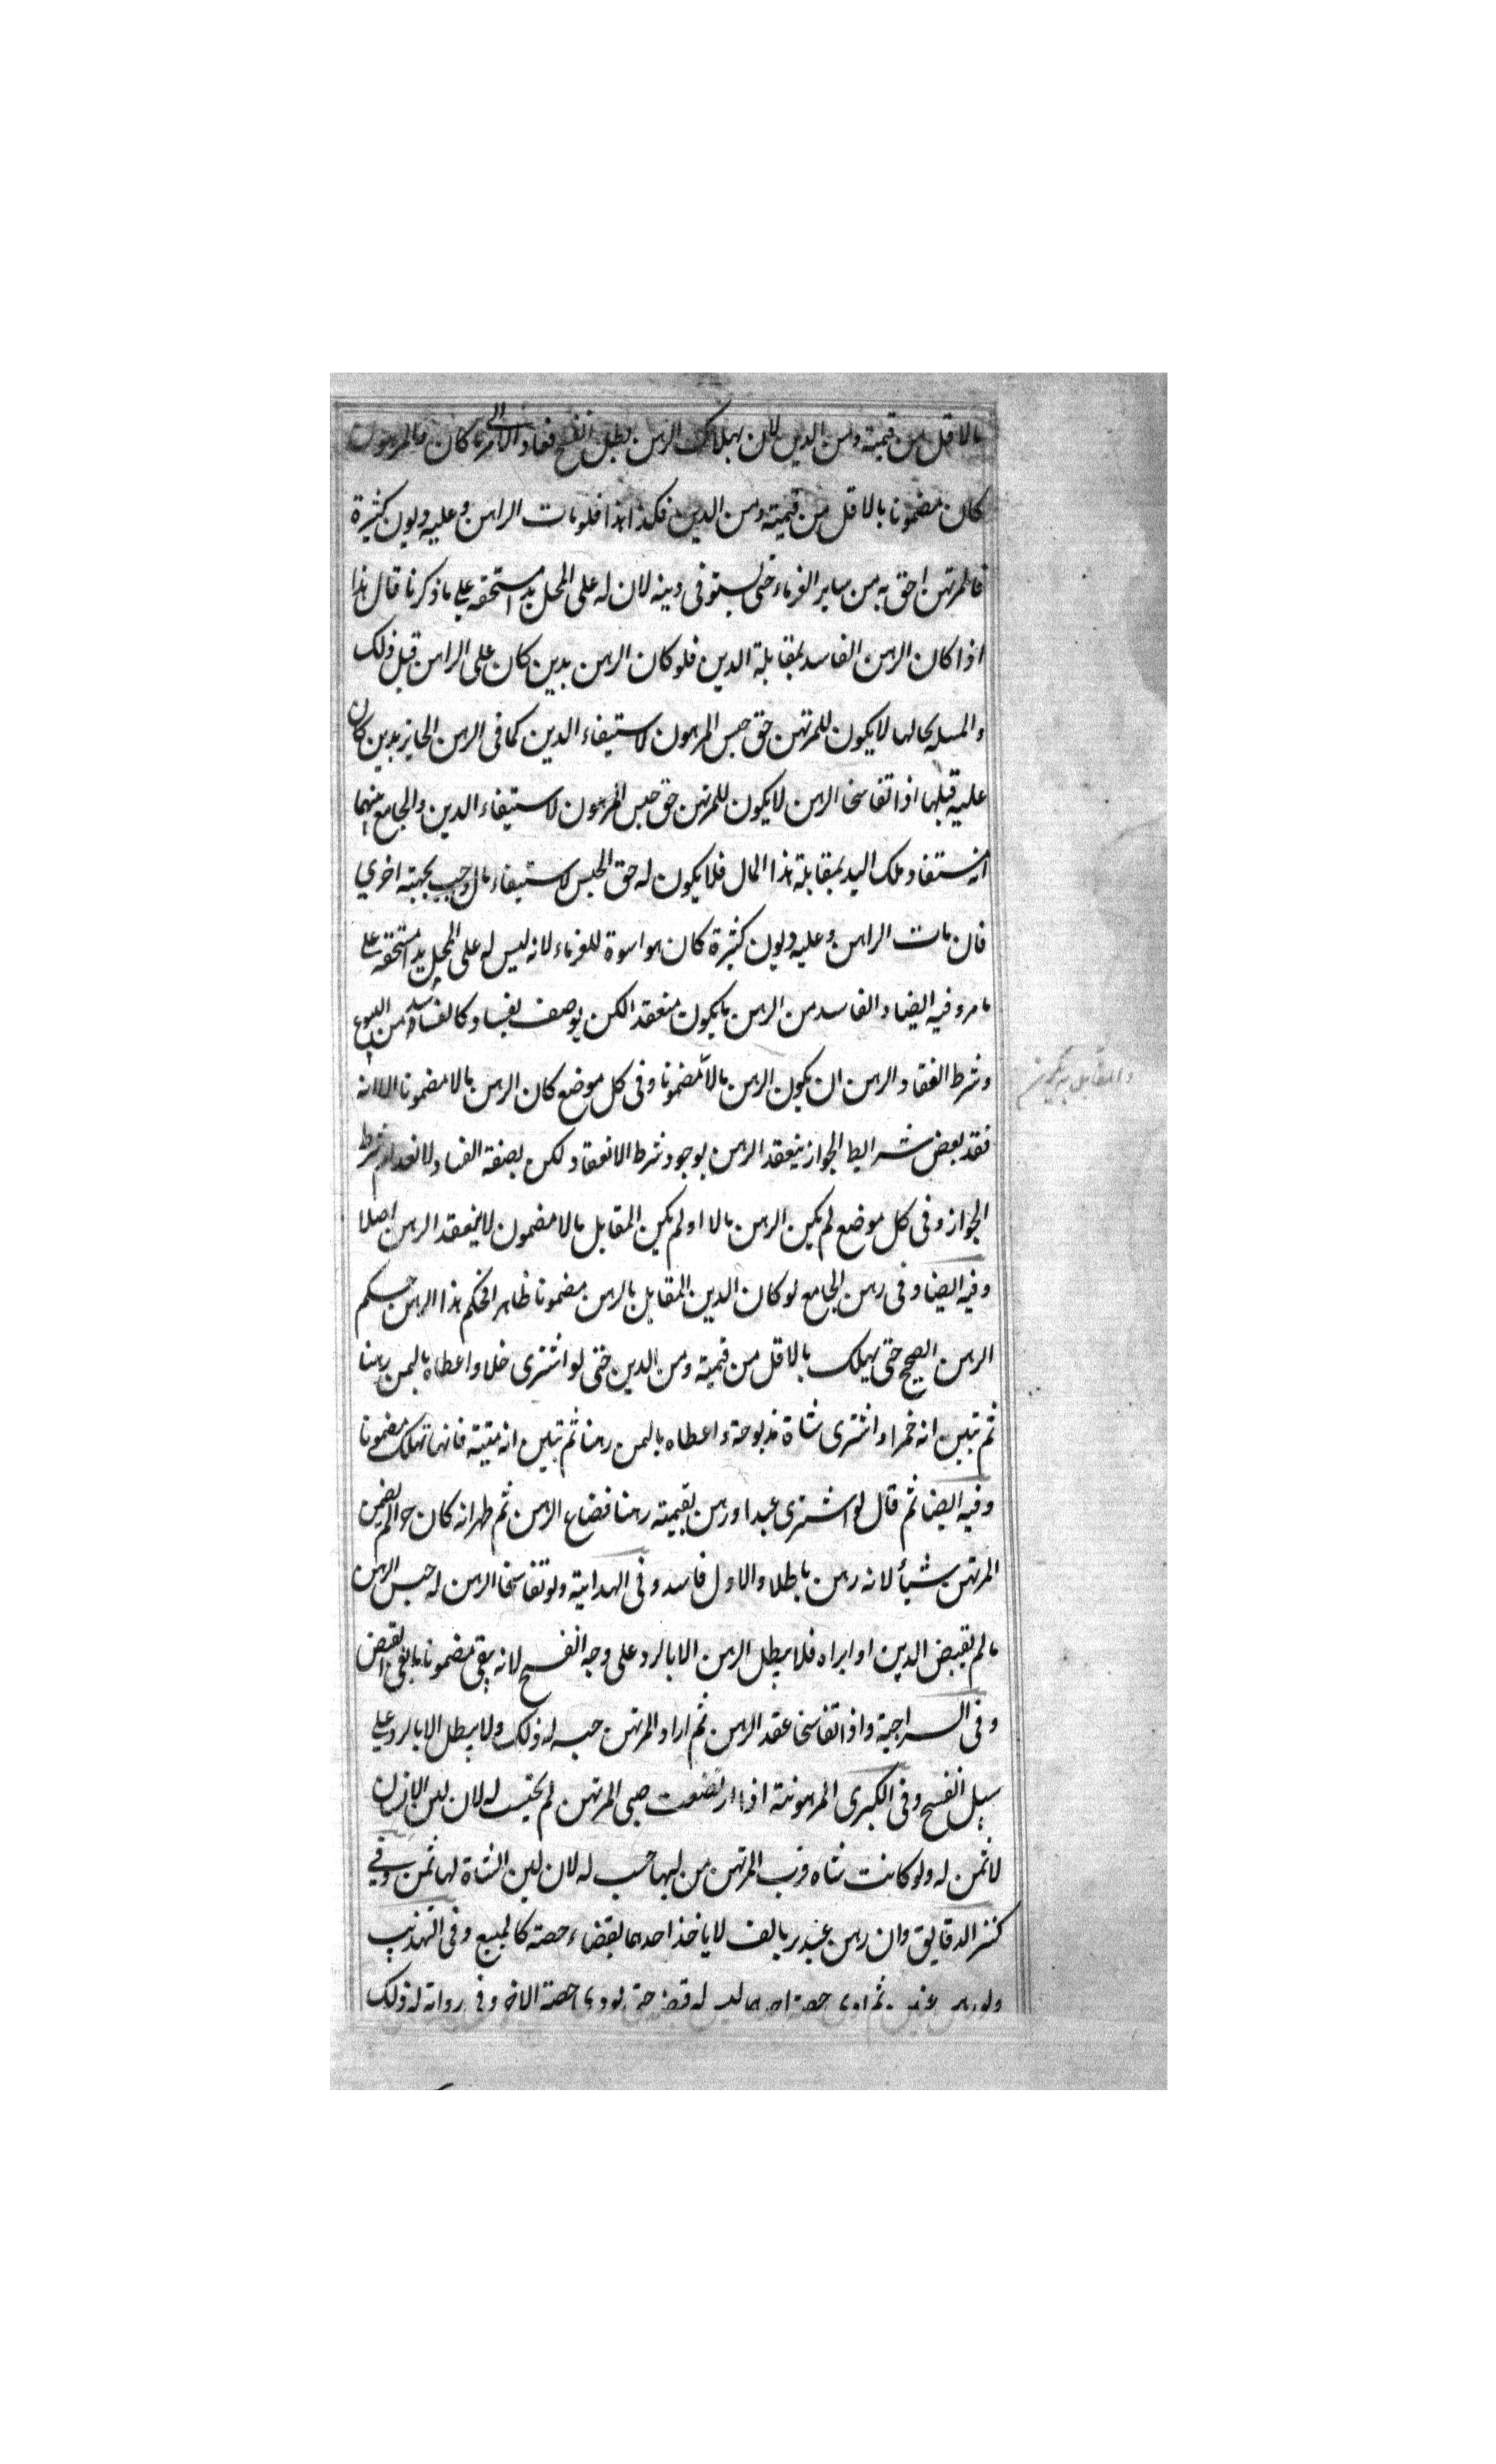 بالاقل من قيمته ومن الدين لان بهلاك الرهن بطل الفسخ فعاد الامر الى ما كان والمرهون
كان مضمونا بالاقل من قيمته ومن الدين فكذا هذا فلو مات الراهن وعليه ديون كثيرة
فالمرتهن احق به من ساير الغرماء حتى يستوفى دينه لان له على المحل يد مستحقه على ما ذكرنا قال هذا
اذا كان الرهن الفاسد بمقابلة الدين فلو كان الرهن بدين كان على الراهن قبل ذلك
والمسله بحالها لا يكون للمرتهن حق حبس المرهون لاستيفاء الدين كما فى الرهن الجايز بدين كان
عليه قبلها اذا تفاسخا الرهن لا يكون للمرتهن حق حبس المرهون لاستيفاء الدين والجامع بينهما
انه استفاد ملك اليد بمقابلة هذا المال فلا يكون له حق الحبس لاستيفاء مال وجب بجهته اخرى
فان مات الراهن وعليه ديون كثيرة كان هو اسوة للغرماء لانه ليس له على المحل يد مستحقه على
ما مر وفيه ايضا والفاسد من الرهن ما يكون منعقدا لكن يوصف بفساد كالفاسد من البيوع
وشرط انعقاد الرهن ان يكون الرهن مالا مضمونا وفى كل موضع كان الرهن مالا مضمونا الا انه
فقد بعض شرايط الجواز ينعقد الرهن بوجود شرط الانعقاد لكن بصفة الفساد لانعدام شرط
الجواز وفى كل موضع لم يكن الرهن مالا او لم يكن المقابل مالا مضمون لا ينعقد الرهن اصلا
وفيه ايضا وفى رهن الجامع لو كان الدين المقابل بالرهن مضمونا ظاهرا فحكم هذا الرهن حكم
الرهن الصحيح حتى يهلك بالاقل من قيمته ومن الدين حتى لو اشترى خلا واعطاه بالثمن رهنا
ثم تبين انه خمر او اشترى شاة مذبوحة واعطاه بالثمن رهنا ثم تبين انه ميتة فانها تهلك مضمونا
وفيه ايضا ثم قال لو اشترى عبدا ورهن بقيمته رهنا فضاع الرهن ثم ظهر انه كان حرا لم يضمن
المرتهن شيأ لانه رهن باطلا والاول فاسد وفى الهداية ولو تفاسخا الرهن له حبس الرهن
ما لم يقبض الدين او ابراه فلا يبطل الرهن الا بالرد على وجه الفسخ لانه يبقى مضمونا ما بقى القبض
وفى السراجية واذا تفاسخا عقد الرهن ثم اراد المرتهن حبسه له ذلك ولا يبطل الا بالرد على
سبيل الفسخ وفى الكبرى المرهونة اذا ارضعت صبى المرتهن لم يحتسب له لان لبن الانسان
لا ثمن له ولو كانت شاه فشرب المرتهن من لبنها حسب له لان لبن الشاة لها ثمن وفى
كنز الدقايق وان رهن عبدين بالف لا ياخذ احدهما بقضاء حصته كالمبيع وفى التهذيب
ولو رهن عينين ثم ادى حصة احدهما ليس له قبضه حتى يودى حصة الاخر وفى رواية له ذلك